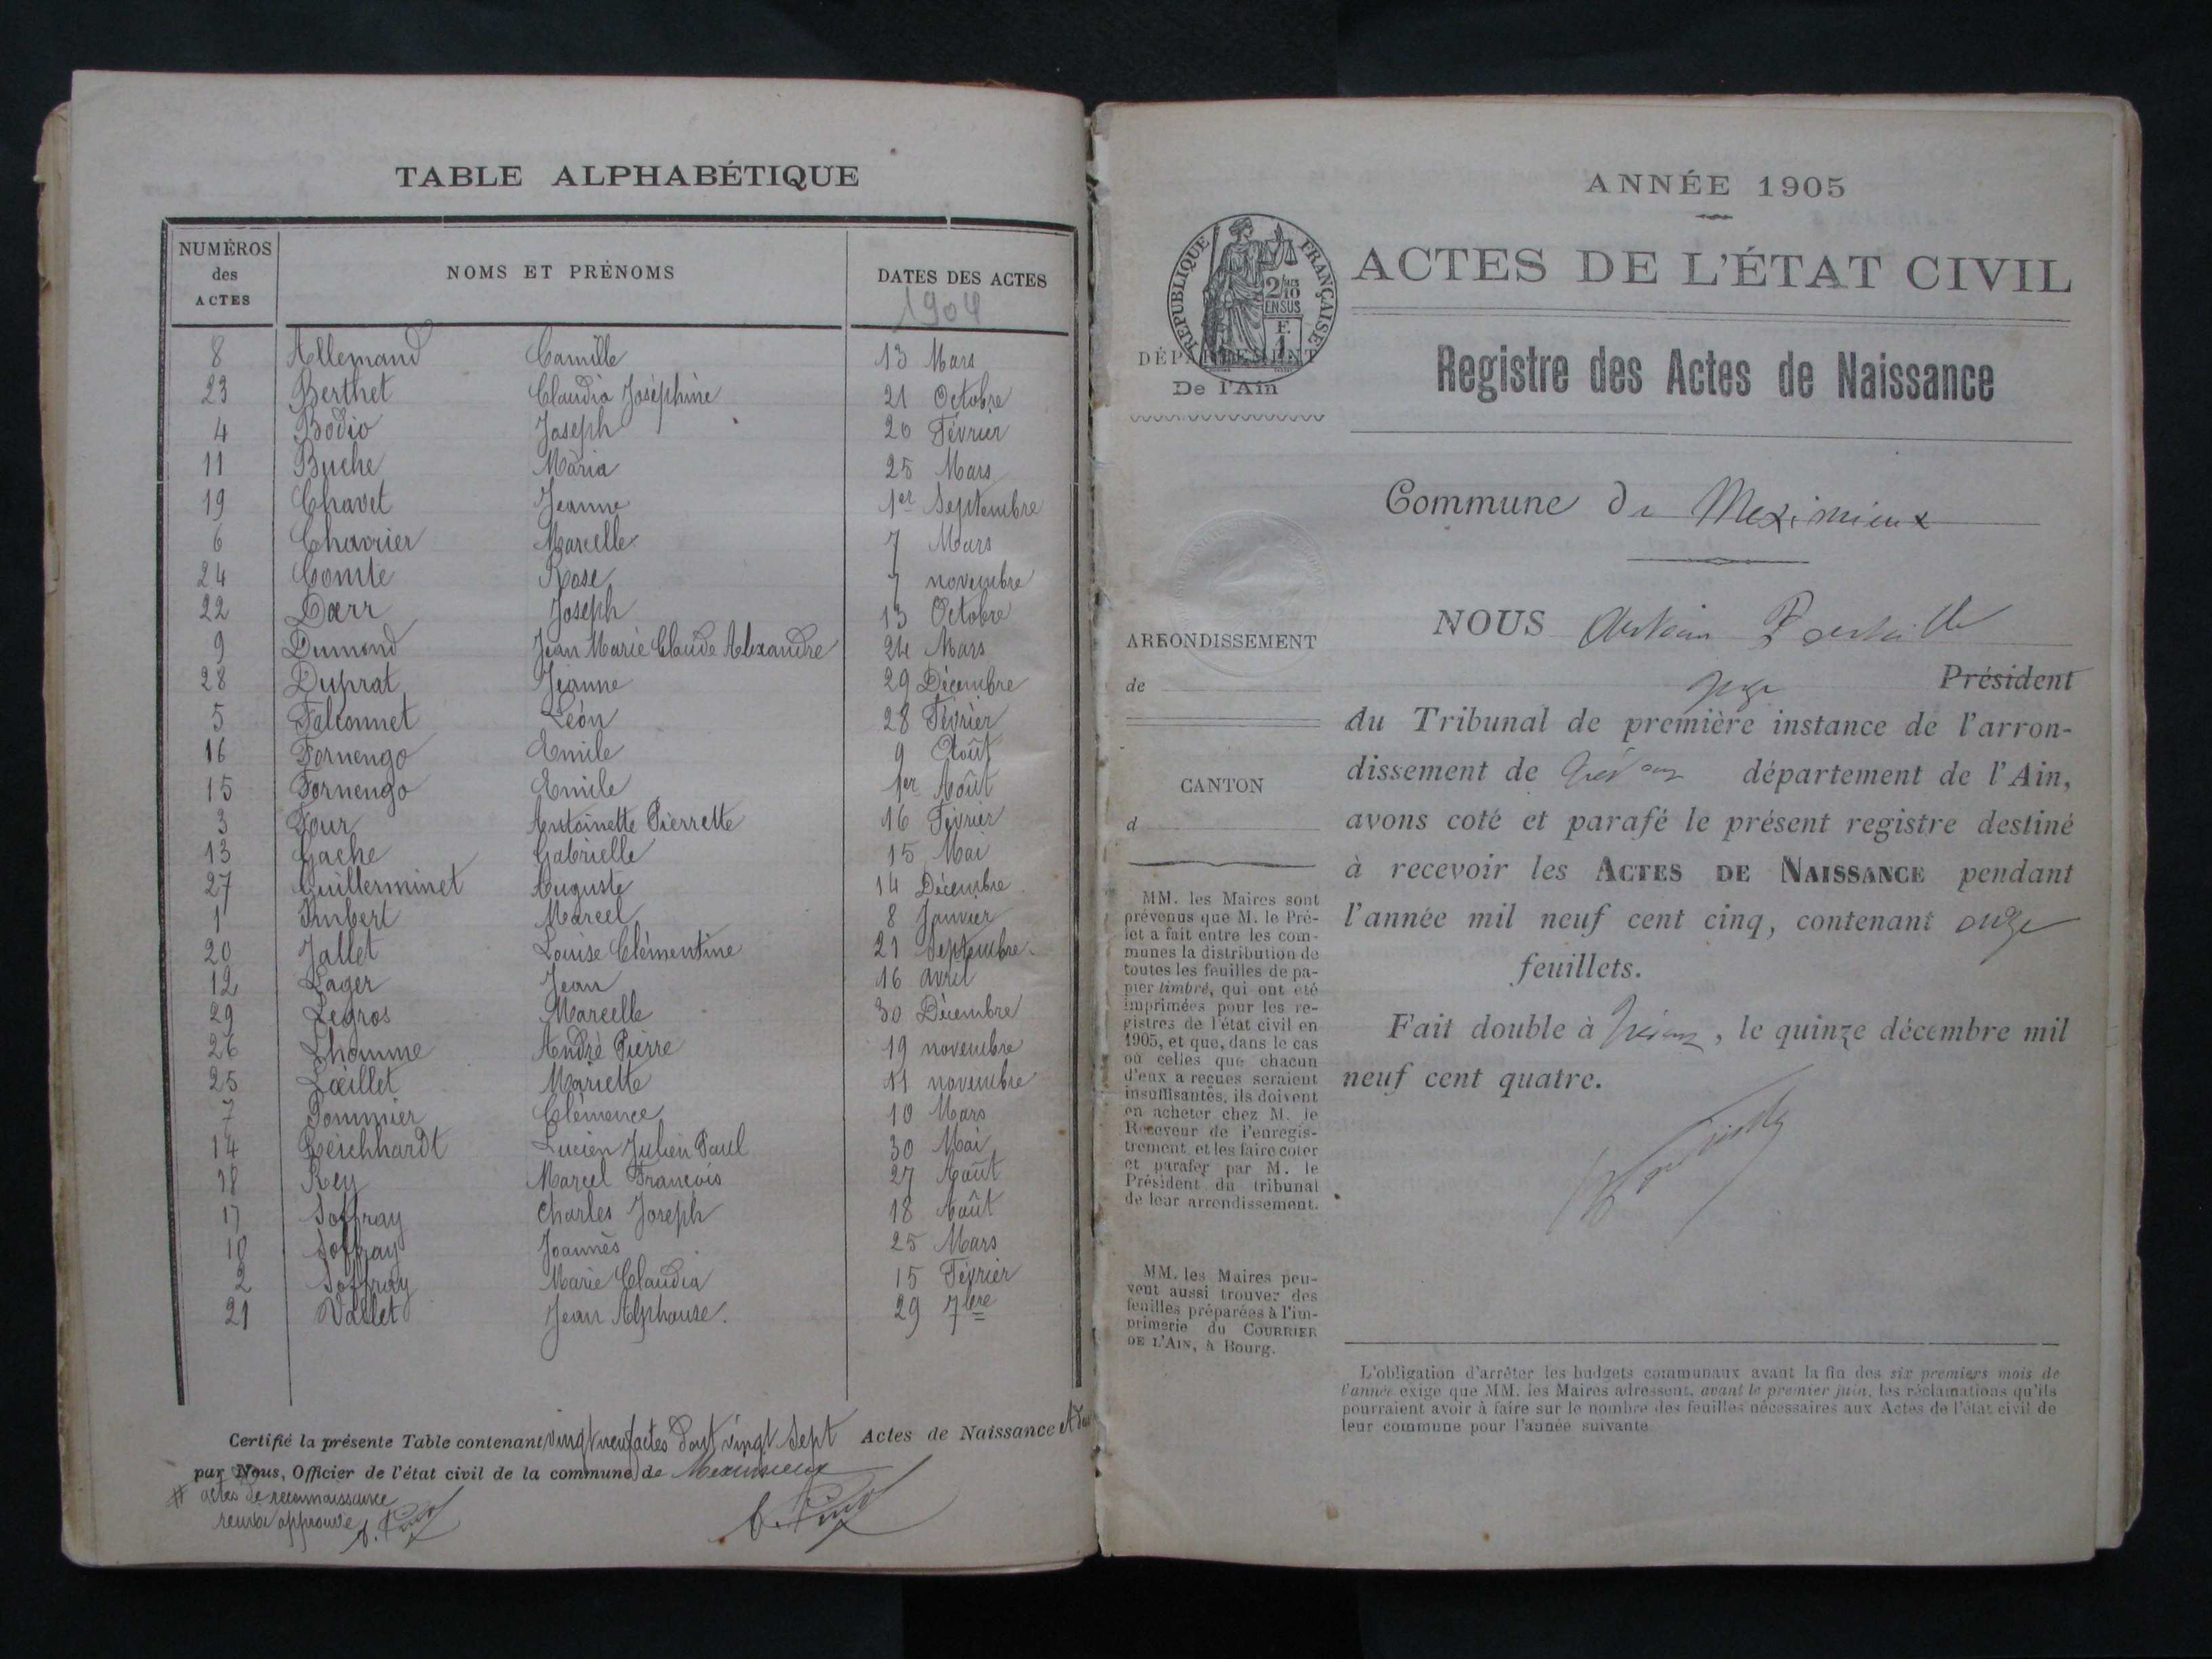 TABLE ALPHABÉTIQUE
NUMÉROS des ACTES NOMS ET PRÉNOMS DATES DES ACTES
1904
8 Allemand Camille 13 Mars
23 Berthet Claudia Joséphine 21 Octobre
4 Bodio Joseph 20 Février
11 Buche Maria 25 Mars
19 Chavet Jeanne 1er Septembre
6 Chavrier Marcelle 7 Mars
24 Comte Rose 7 novembre
22 Dœrr Joseph 13 Octobre
9 Dumond Jean Marie Claude Alexandre 24 Mars
28 Duprat Jeanne 29 Décembre
5 Falconnet Léon 28 Février
16 Fornengo Emile 9 Août
15 Fornengo Emile 1er Août
3 Four Antoinette Pierrette 16 Février
13 Gache Gabrielle 15 Mai
27 Guillerminet Auguste 14 Décembre
1 Imbert Marcel 8 Janvier
20 Jallet Louise Clémentine 21 Septembre
12 Lager Jean 16 avril
29 Legros Marcelle 30 Décembre
26 Lhomme André Pierre 19 novembre
25 Lœillet Mariette 11 novembre
7 Pommier Clémence 10 Mars
14 Reichhardt Lucien Julien Paul 30 Mai
18 Rey Marcel François 27 Août
17 Soffray Charles Joseph 18 Août
10 Soffray Joannès 25 Mars
2 Soffray Marie Claudia 15 Février
21 Vallet Jean Alphonse. 29 7bre
Certifié la présente Table contenant vingt neuf actes dont vingt sept Actes de Naissance et
par Nous, Officier de l'état civil de la commune de Meximieux
# actes de reconnaissance
renvoi approuvé
ANNÉE 1905
ACTES DE L'ÉTAT CIVIL
RÉPUBLIQUE FRANÇAISE
2/10 EN SUS
F. 1
DÉPARTEMENT
De l'Ain
Registre des Actes de Naissance
Commune de Meximieux
NOUS
ARRONDISSEMENT
de
juge Président
du Tribunal de première instance de l'arron-
dissement de Trévoux département de l'Ain,
CANTON
d
avons coté et parafé le présent registre destiné
à recevoir les ACTES DE NAISSANCE pendant
l'année mil neuf cent cinq, contenant onze
feuillets.
Fait double à Trévoux, le quinze décembre mil
neuf cent quatre.
MM. les Maires sont
prévenus que M. le Pré-
fet a fait entre les com-
munes la distribution de
toutes les feuilles de pa-
pier timbré, qui ont été
imprimées pour les re-
gistres de l'état civil en
1905, et que, dans le cas
où celles que chacun
d'eux a reçues seraient
insuffisantes, ils doivent
en acheter chez M. le
Receveur de l'enregis-
trement et les faire coter
et parafer par M. le
Président du tribunal
de leur arrondissement.
MM. les Maires peu-
vent aussi trouver des
feuilles préparées à l'im-
primerie du COURRIER
DE L'AIN, à Bourg.
L'obligation d'arrêter les budgets communaux avant la fin des six premiers mois de
l'année exige que MM. les Maires adressent, avant le premier juin, les réclamations qu'ils
pourraient avoir à faire sur le nombre des feuilles nécessaires aux Actes de l'état civil de
leur commune pour l'année suivante